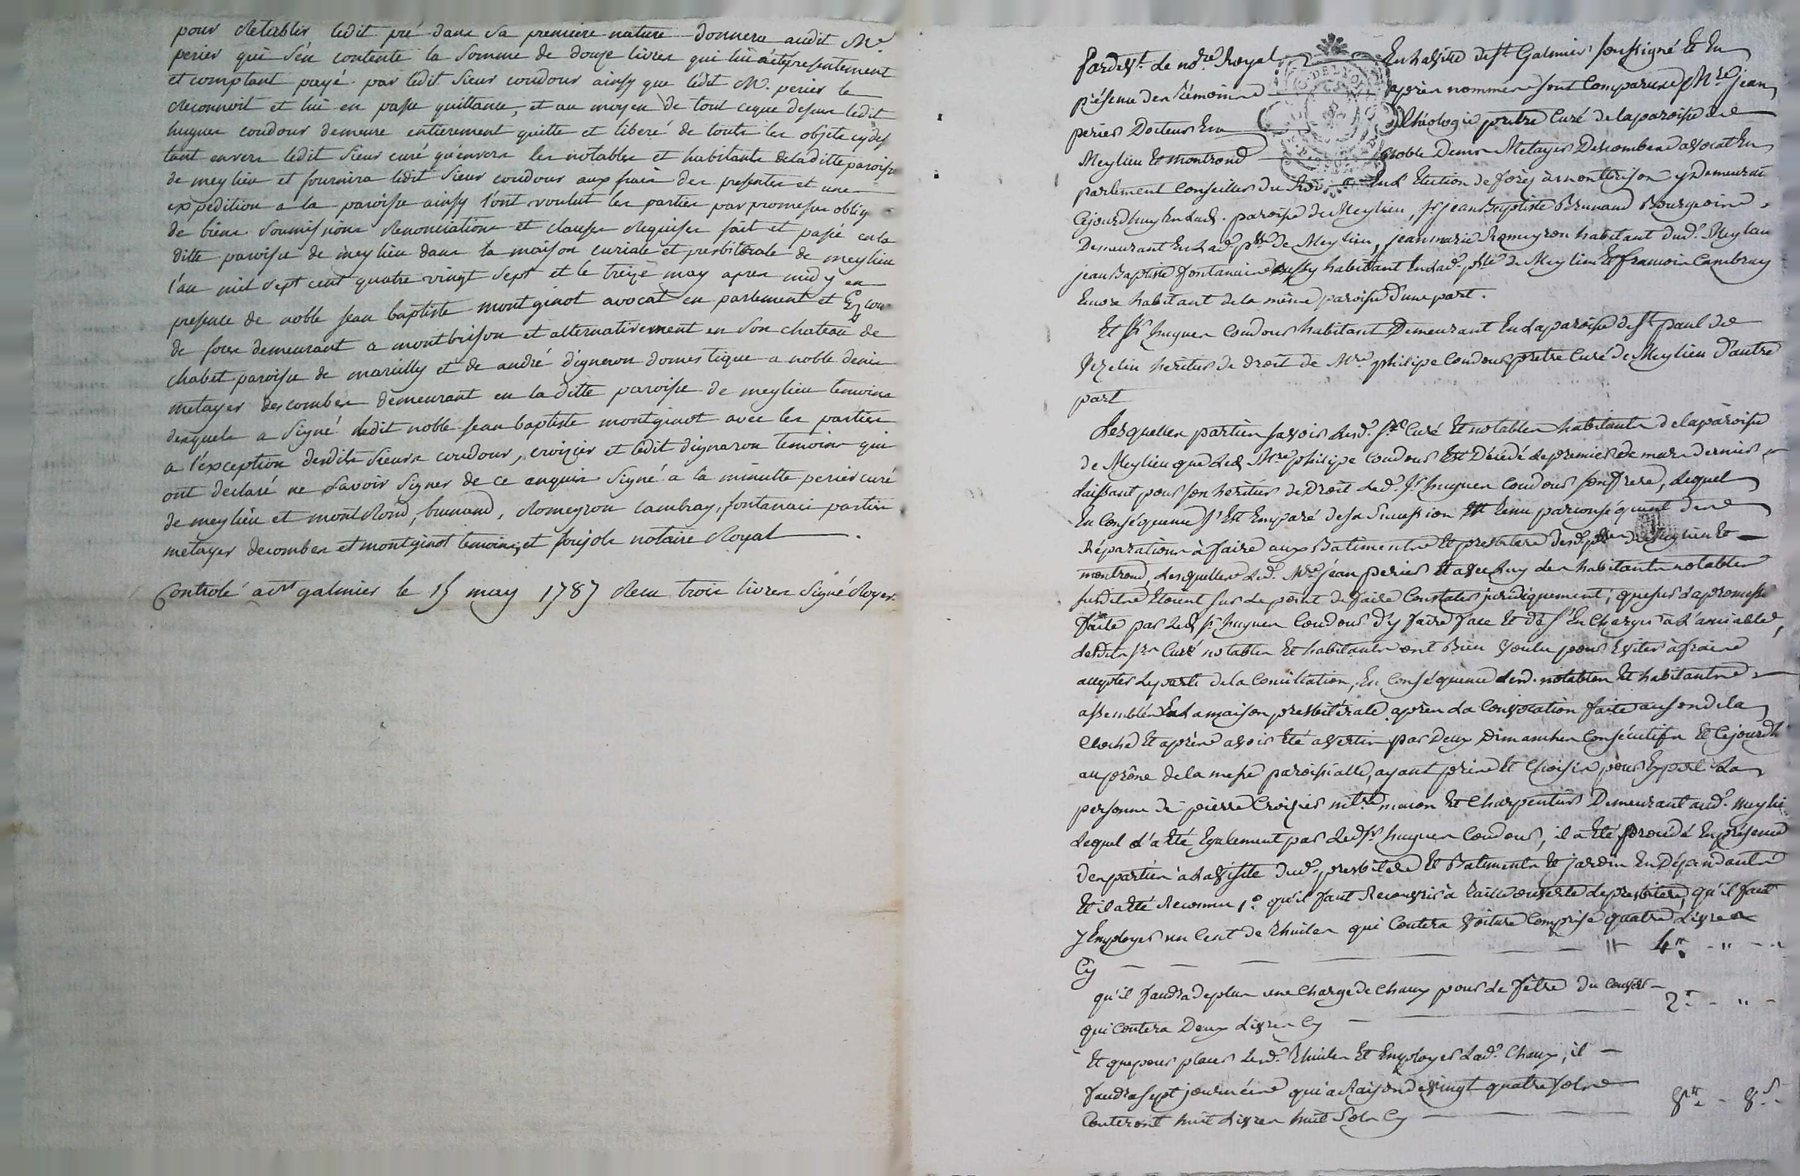 pour retablir ledit pré dans sa premiere nature donnera audit Mr.
perier qui s'en contente la somme de douze livres qui lui a été presentement
et comptant payé par ledit sieur coudour ainsy que ledit Mr. perier le
reconnoit et lui en passe quittance, et au moyen de tout ceque dessus ledit
hugues coudour demeure entierement quitte et liberé de touts les objets cydes
tant envers ledit sieur curé qu'envers les notables et habitants de laditte paroisse
de meylieu et fournira ledit sieur coudour aux frais des presentes et une
expedition a la paroisse ainsy l'ont voulut les parties par promesses oblig
de biens soumissions renonciations et clauses requises fait et passé en la
ditte paroisse de meylieu dans la maison curiale et presbiterale de meylieu
l'an mil sept cent quatre vingt sept et le treize may apres midy en
presence de noble jean baptiste montginot avocat en parlement et
de forez demeurant a montbrison et alternativement en son chateau de
chabet paroisse de marcilly et de andré digneron domestique a noble denis
metayer descombes demeurant en la ditte paroisse de meylieu temoins
desquels a signé ledit noble jean baptiste montginot avec les parties
a l'exception desdits sieurs coudour, croizier et ledit digneron temoin qui
ont declaré ne savoir signer de ce enquis signé a la minutte perier curé
de meylieu et montrond, brunand, romeyron cambray, fontanais parties
metayer decombes et montginot temoins et notaire Royal
Controlé a st galmier le 15 may 1787 recu trois livres signé Royer
Pardevt. le nore. Royal En la ville de st Galmier soussigné et En
présence des témoins après nommés sont Comparus Mre jean
perier Docteur En théologie prêtre Curé de la paroisse de
Meylieu et montrond noble Denis Metayer Descombes avocat En
parlement Conseiller du Roi En L'Election de forez à montbrison y Demeurant
Cejourdhuy En lad. paroisse de Meylieu, sr jean Baptiste Brunand Bourgeois
Demeurant En lad. psse de Meylieu, jean marie Romeyron habitant dud. Meylieu
jean Baptiste fontanais aussy habitant En lad. psse de Meylieu Et francois Cambray
Encore habitant de la même paroisse d'une part.
Et sr hugues Coudour habitant Demeurant En la paroisse de st paul de
Vezelin héritier de droit de Mre philipe Coudour prêtre Curé de Meylieu d'autre
part
Lesquelles parties savoir lesd. srs Curé Et notables habitants de la paroisse
de Meylieu que Led. Mre philipe Coudour Est Décédé le premier de mars dernier
Laissant pour son heritier de Droit led. sr hugues Coudour son frere, Lequel
En Conséquence s'Est Emparé de sa succession Et tenu par conséquent des
Réparations à faire aux Batiments Et presbitere desd. Meylieu Et
montrond, Lesquelles Led. Mre jean perier Et avec Luy les habitants notables
susdits étoient sur Le point de faire Constater juridiquement, que sur La promesse
faite par Led. sr hugues Coudour d'y faire face Et de s'En Charger à L'amiable,
Lesdits srs Curé notables Et habitants ont Bien voulu pour Eviter à frais
accepter Le parti de la Conciliation, En Conséquence Lesd. notables Et habitants
assemblés En La maison presbitérale après La Convocation faite au son de la
Cloche Et après avoir été avertis par Deux Dimanches Consécutifs Et Cejourdh
au prône de la messe paroissialle, ayant pris Et Choisi pour Expert La
personne de pierre Croizier mtre maçon Et Charpentier Demeurant aud. meylie
Lequel L'a Eté Egalement par Led. sr hugues Coudour, il a Eté procédé En présence
des parties à La visite dud. presbitere Et Batiments Et jardin En Dépendants
Et il a Eté Reconnu 1° qu'il faut Recouvrir à taille ouverte Le presbitere, qu'il faut
y Employer un Cent de thuiles qui Coutera voiture Comprise quatre Livres
Cy 4tt " "
qu'il faudra de plus une Charge de Chaux pour Le fêtre du Couvert
qui Coutera Deux Livres Cy 2tt " "
Et que pour placer Lesd. thuiles Et Employer Lad. Chaux, il
faudra sept journées qui à Raison de vingt quatre sols
Couteront huit Livres huit sols Cy 8tt 8s